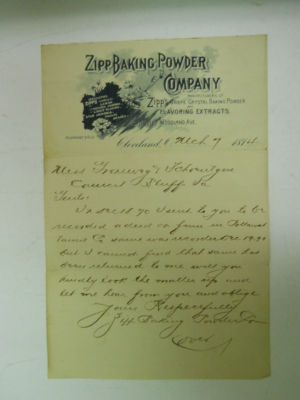 ZIPP BAKING POWDER
COMPANY
MANUFACTURERS OF
ZIPP'S GRAPE CRYSTAL BAKING POWDER
AND
FLAVORING EXTRACTS
WOODLAND AVE.
Cleveland, O. Mch 7 1894
Mess &
Council Bluff Ia
Gents:
I sent to you to be
recorded a deed on farm in Pottawat
tamie Co same was recorded
but I cannot find that same has
been returned to me will you
kindly look the matter up and
let me hear from you and oblige
Yours Respectfully
Zipp Baking Powder Co
Over